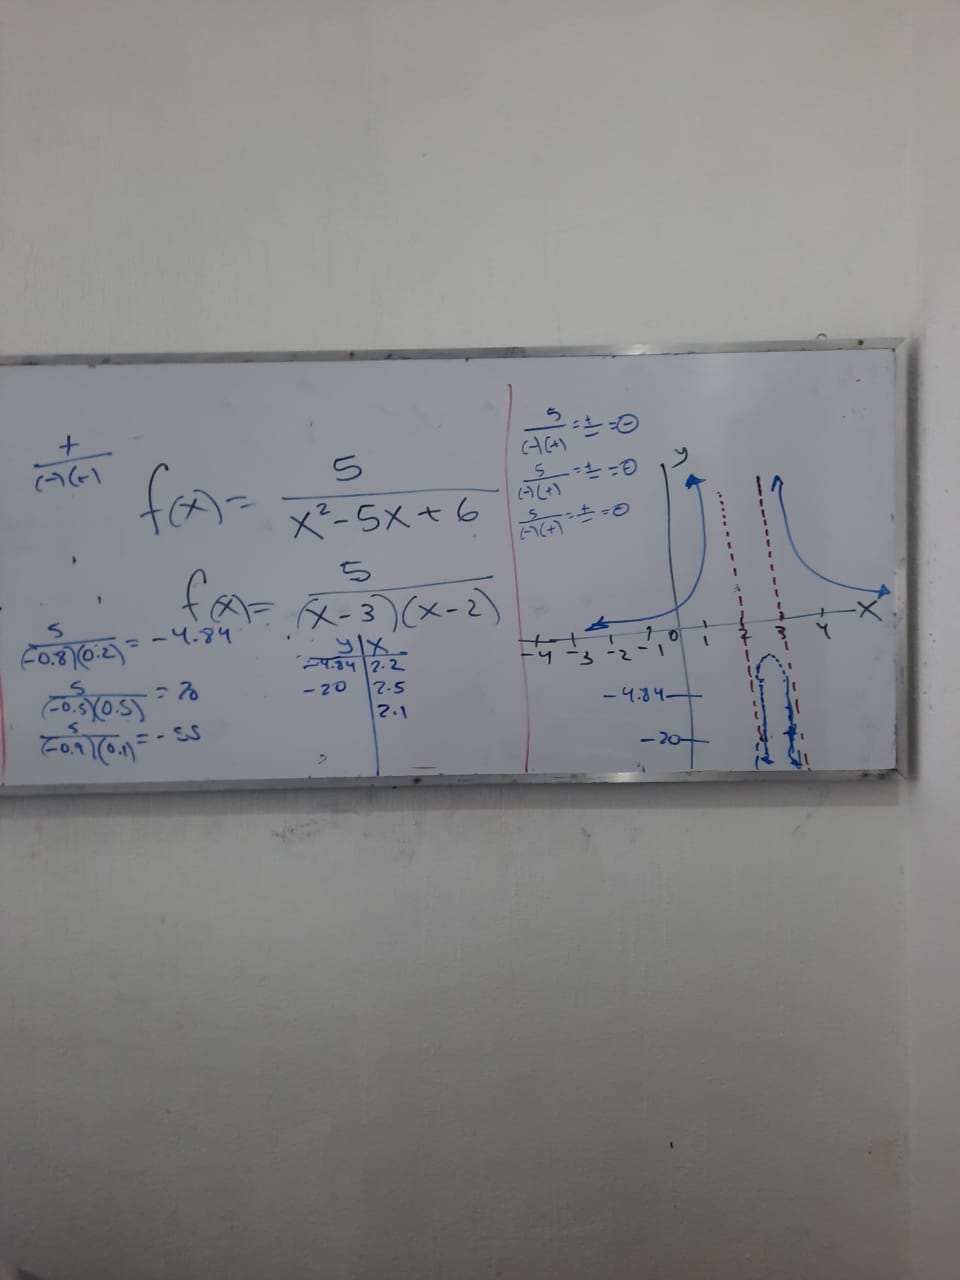 +
(-)(-)
f(x) = 5
x² - 5x + 6
f(x) = 5
(x-3)(x-2)
5
(-0.8)(0.2) = -4.84
5
(-0.5)(0.5) = 20
5
(-0.9)(0.1) = -55
y x
-4.84 2.2
-20 2.5
2.1
5
(-)(+) = ± = ⊖
5
(-)(+) = ± = ⊖
5
(-)(+) = ± = ⊖
y
x
-4 -3 -2 -1 0 1 2 3 4
-4.84
-20